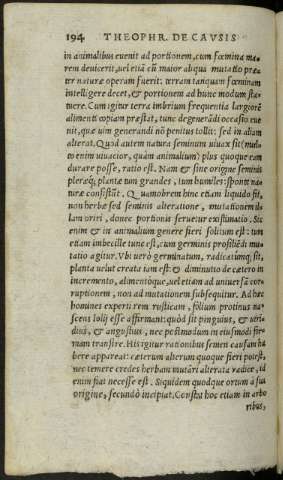 194 THEOPHR. DE CAVSIS
in animalibus euenit ad portionem, cum fœmina ma-
rem deuicerit, uel etiã cũ maior aliqua mutatio præ-
ter naturæ operam fuerit: terram tanquam fœminam
intelligere decet, & portionem ad hunc modum sta-
tuere. Cum igitur terra imbrium frequentia largiorẽ
alimenti copiam præstat, tunc degenerãdi occasio eue
nit, quæ uim generandi nõ penitus tollit: sed in aliam
alterat. Quòd autem natura seminum uiuax sit (mul-
to enim uiuacior, quàm animalium) plus quoque eam
durare posse, ratio est. Nam & sine origine seminis
pleræq; plantæ tum grandes, tum humiles: sponte na-
turæ consistũt. Quamobrem hinc etiam liquido sit,
non herbæ sed seminis alteratione, mutationem il-
lam oriri, donec portionis seruetur existimatio. Sic
enim & in animalium genere fieri solitum est: tum
etiam imbecille tunc est, cum germinis profiliẽdi mu-
tatio agitur. Vbi uerò germinatum, radicatumq; sit,
planta uelut creata iam est: & diminutio de cætero in
incremento, alimentóque, uel etiam ad uniuersã cor-
ruptionem, non ad mutationem subsequitur. Ad hæc
homines experti rem rusticam, folium protinus na-
scens lolij esse affirmant: quòd sit pinguius, & uiri-
dius, & angustius, nec postmodum in eiusmodi for-
mam transire. His igitur rationibus semen causam ha
bere appareat: cæterum alterum quoque fieri potest,
nec temere credes herbam mutari alterata radice, id
enim fiat necesse est. Siquidem quodque ortum à sua
origine, secundò incipiat. Constat hoc etiam in arbo
ribus,